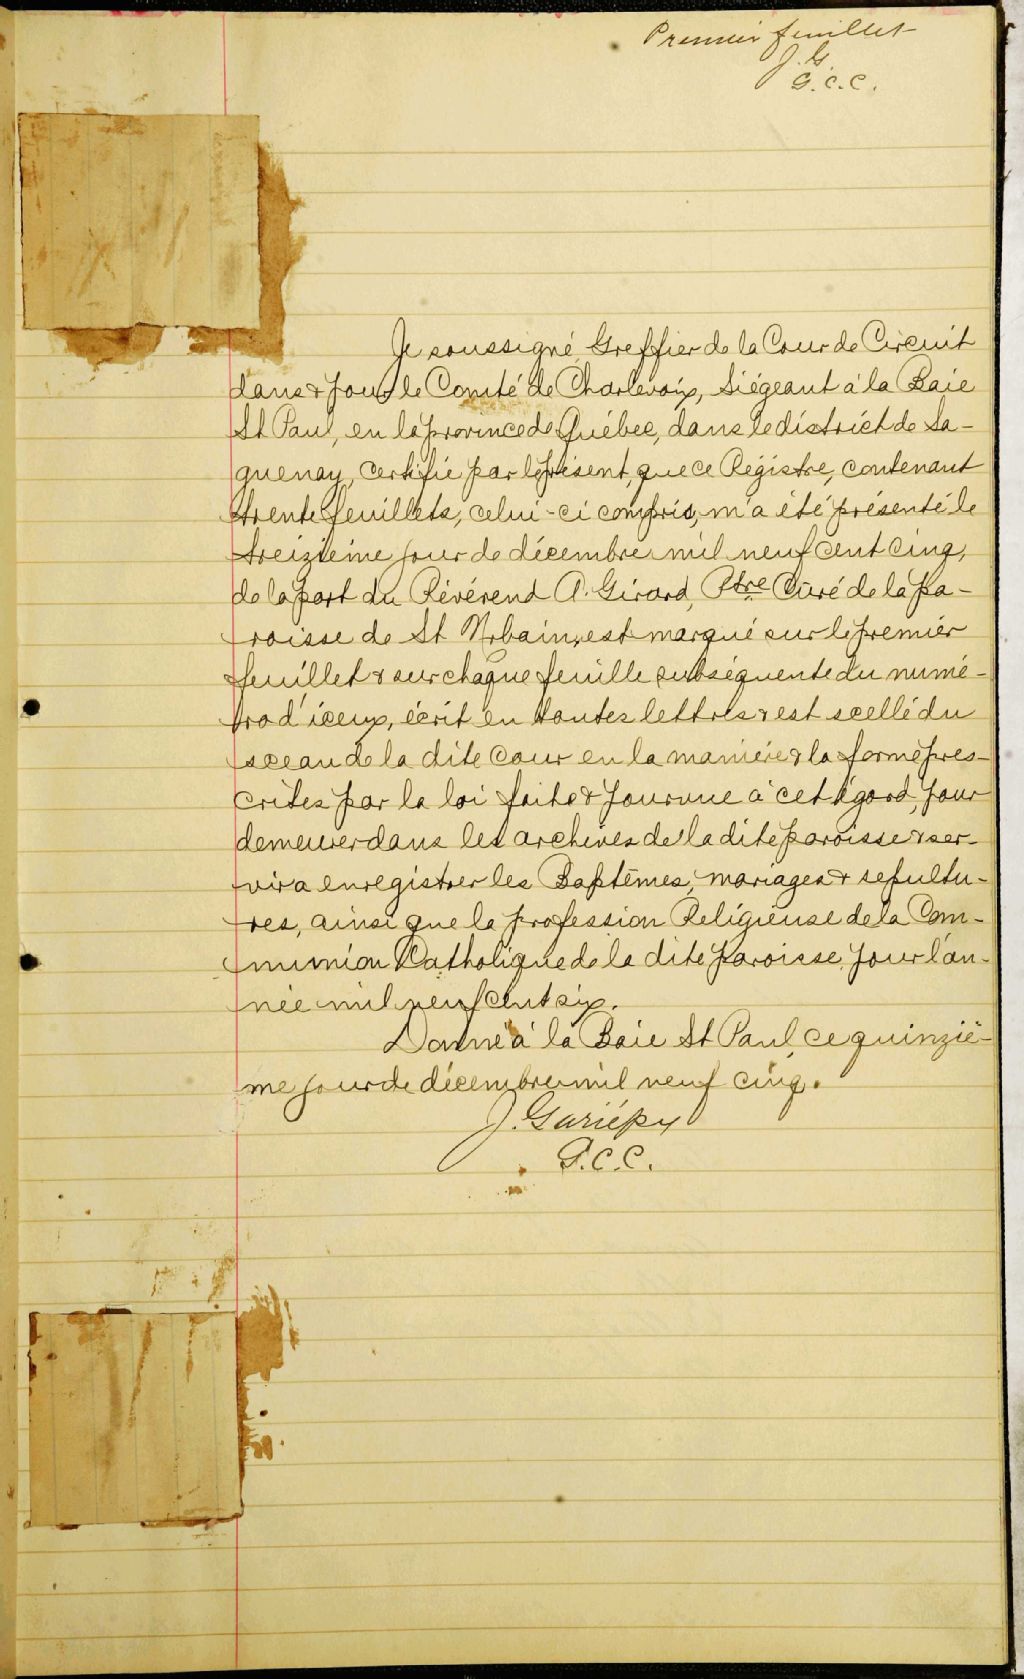 Premier feuillet
J. G.
G.C.C.
Je soussigné, Greffier de la Cour de Circuit
dans & pour le Comté de Charlevoix, siégeant à la Baie
St Paul, en la province de Québec, dans le district de Sa-
guenay, certifie par le présent, que ce Régistre, contenant
trente feuillets, celui-ci compris, m'a été présenté le
treizième jour de décembre mil neuf cent cinq,
de la part du Révérend A. Girard, Ptre Curé de la pa-
roisse de St Urbain, est marqué sur le premier
feuillet & sur chaque feuille subséquente du numé-
ro d'iceux, écrit en toutes lettres & est scellé du
sceau de la dite Cour en la manière & la forme pres-
crites par la loi faite & pourvue à cet égard, pour
demeurer dans les archives de la dite paroisse & ser-
vir a enregistrer les Baptêmes, mariages & sepultu-
res, ainsi que la profession Religieuse de la Com-
munion Catholique de la dite paroisse, pour l'an-
née mil neuf cent six.
Donné à la Baie St Paul, ce quinziè-
me jour de décembre mil neuf cinq.
J. Gariépy
G.C.C.